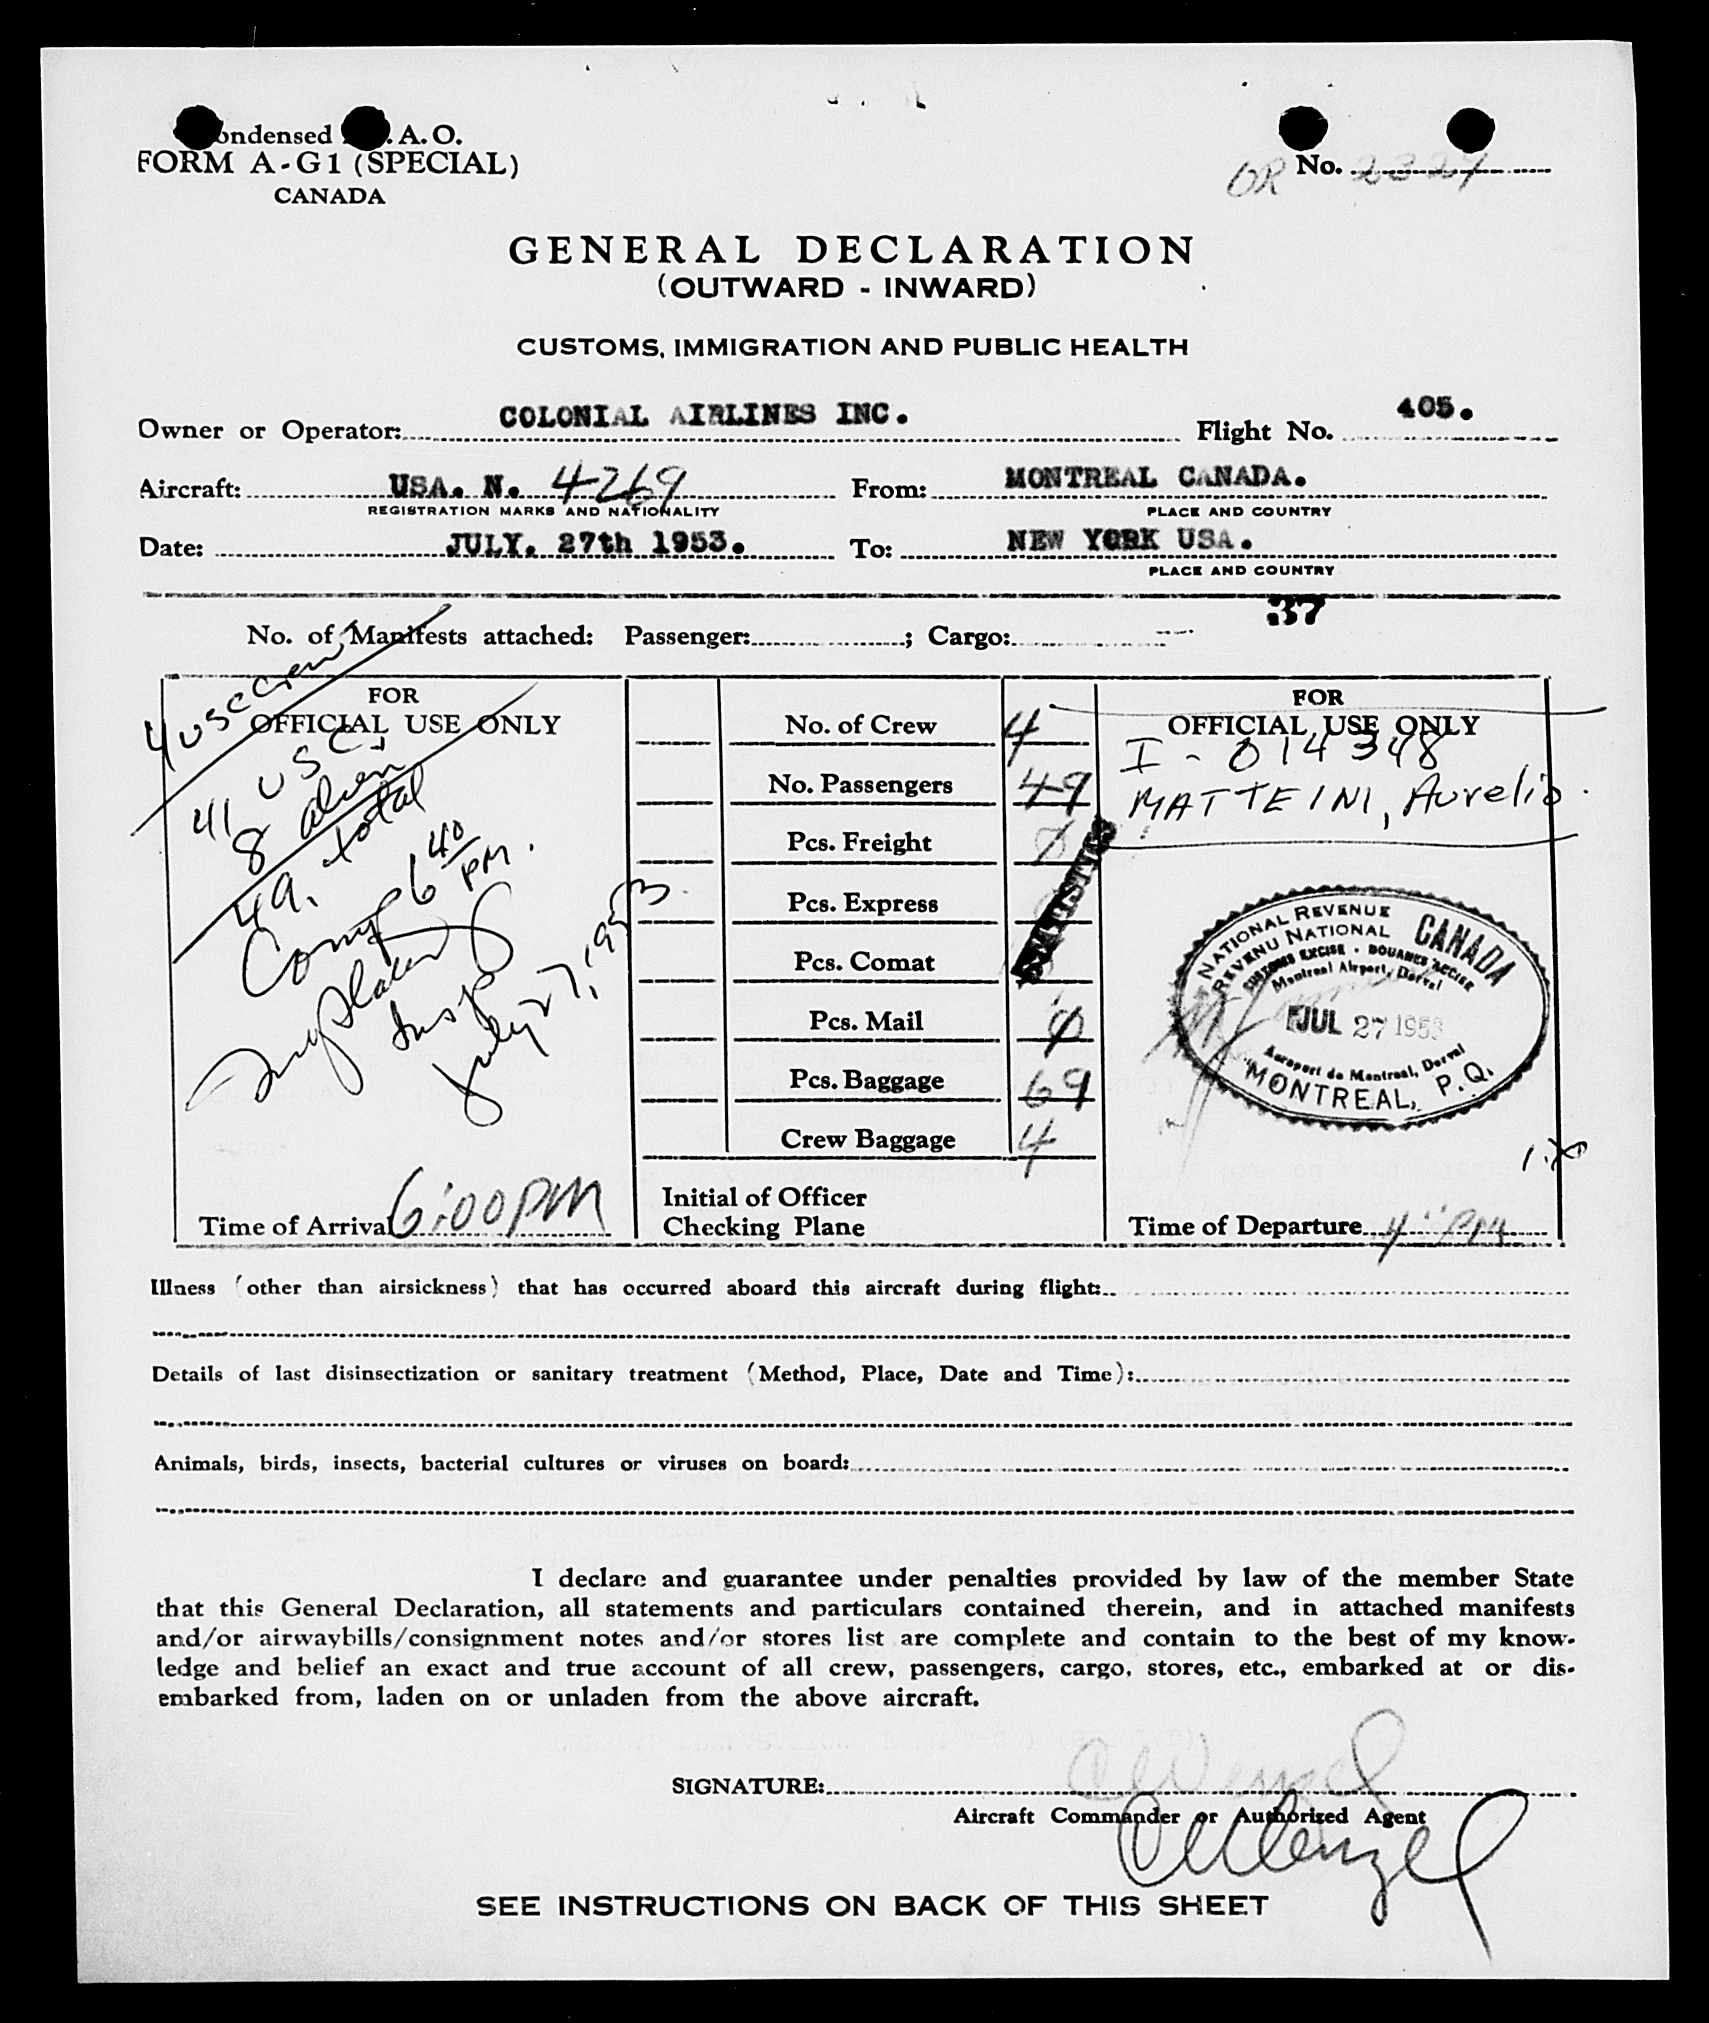 ondensed . A. O.
FORM A-G1 (SPECIAL)
CANADA
OR No. 2327
GENERAL DECLARATION
(OUTWARD - INWARD)
CUSTOMS, IMMIGRATION AND PUBLIC HEALTH
Owner or Operator: COLONIAL AIRLINES INC. Flight No. 405.
Aircraft: USA. N. 4269 From: MONTREAL CANADA.
REGISTRATION MARKS AND NATIONALITY PLACE AND COUNTRY
Date: JULY. 27th 1953. To: NEW YORK USA.
PLACE AND COUNTRY
37
No. of Manifests attached: Passenger: ; Cargo:
FOR
OFFICIAL USE ONLY
4 USC Crew
41 USC
8 alien
49. total
Comp 6 40 PM.
Insp
July 27, 1953
Time of Arrival 6:00 PM
No. of Crew 4
No. Passengers 49
Pcs. Freight 0
Pcs. Express
Pcs. Comat
Pcs. Mail 0
Pcs. Baggage 69
Crew Baggage 4
STATISTICS
Initial of Officer
Checking Plane
FOR
OFFICIAL USE ONLY
I - 014348
MATTEINI, Aurelio.
NATIONAL REVENUE
REVENU NATIONAL
CANADA
CUSTOMS EXCISE · DOUANES ACCISE
Montreal Airport, Dorval
JUL 27 1953
Aeroport de Montreal, Dorval
MONTREAL, P.Q.
Time of Departure 4 PM
Illness (other than airsickness) that has occurred aboard this aircraft during flight:
Details of last disinsectization or sanitary treatment (Method, Place, Date and Time):
Animals, birds, insects, bacterial cultures or viruses on board:
I declare and guarantee under penalties provided by law of the member State
that this General Declaration, all statements and particulars contained therein, and in attached manifests
and/or airwaybills/consignment notes and/or stores list are complete and contain to the best of my know-
ledge and belief an exact and true account of all crew, passengers, cargo, stores, etc., embarked at or dis-
embarked from, laden on or unladen from the above aircraft.
SIGNATURE:
Aircraft Commander or Authorized Agent
SEE INSTRUCTIONS ON BACK OF THIS SHEET